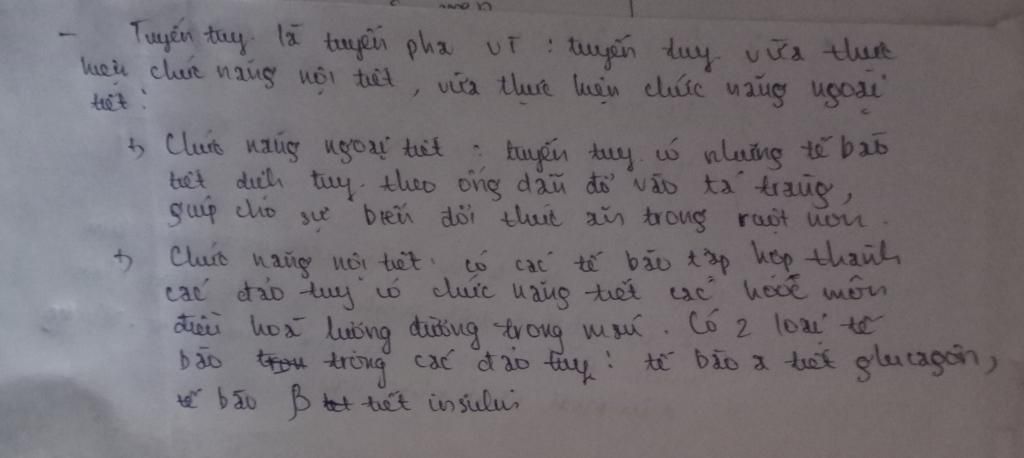 - Tuyến tuy là tuyến pha vì : tuyến tuy vừa thực
hiện chức năng nội tiết, vừa thực hiện chức năng ngoại
tiết :
+) Chức năng ngoại tiết : tuyến tuy có những tế bào
tiết dịch tuy theo ống dẫn đổ vào tá tràng,
giúp cho sự biến đổi thức ăn trong ruột non.
+) Chức năng nội tiết. có các tế bào tập hợp thành
các đảo tuỵ có chức năng tiết các hóoc môn
điều hoà lượng đường trong máu. Có 2 loại tế
bào trong các đảo tuỵ : tế bào α tiết glucagôn,
tế bào β tiết insulin